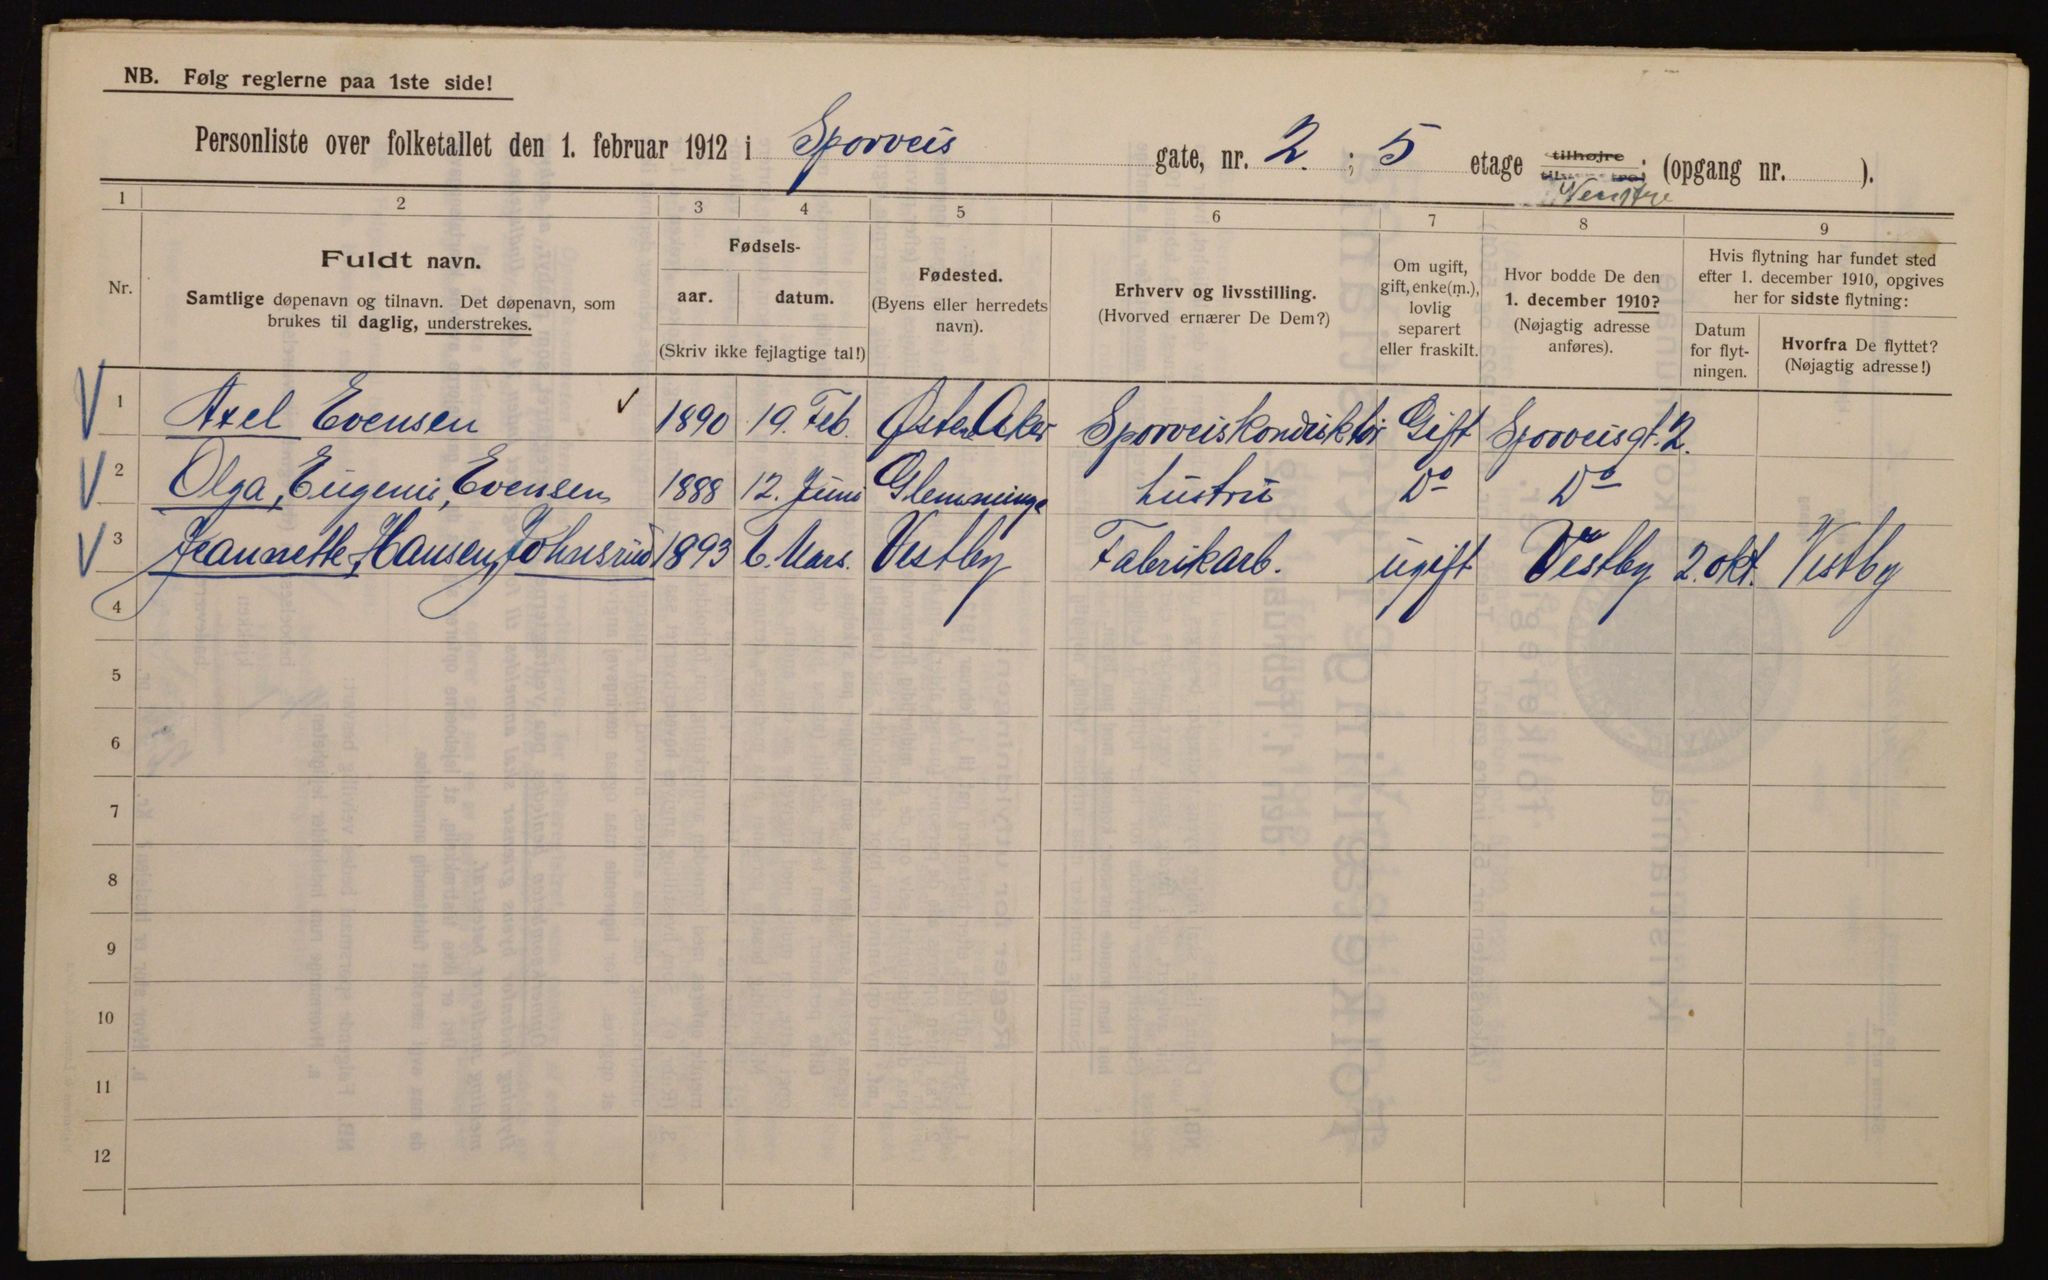 NB. Følg reglerne paa 1ste side!
Personliste over folketallet den 1. februar 1912 i Sporveis gate, nr. 2. ; 5 etage tilhøjre (opgang nr. ).
Venstre
1 2 3 4 5 6 7 8 9
Nr.
Fuldt navn.
Samtlige døpenavn og tilnavn. Det døpenavn, som
brukes til daglig, understrekes.
Fødsels-
aar. datum.
(Skriv ikke fejlagtige tal!)
Fødested.
(Byens eller herredets
navn).
Erhverv og livsstilling.
(Hvorved ernærer De Dem?)
Om ugift,
gift, enke(m.),
lovlig
separert
eller fraskilt.
Hvor bodde De den
1. december 1910?
(Nøjagtig adresse
anføres).
Hvis flytning har fundet sted
efter 1. december 1910, opgives
her for sidste flytning:
Datum
for flyt-
ningen.
Hvorfra De flyttet?
(Nøjagtig adresse!)
1 Axel Evensen 1890 19. Feb. Østre Aker Sporveiskonduktør Gift Sporveisgt. 2.
2 Olga, Eugenie, Evensen 1888 12. Juni Glemminge Hustru Do Do
3 Jeannette, Hansen, Johnsrud 1893 6. Mars. Vestby Fabrikarb. ugift Vestby 2. okt. Vestby
4
5
6
7
8
9
10
11
12